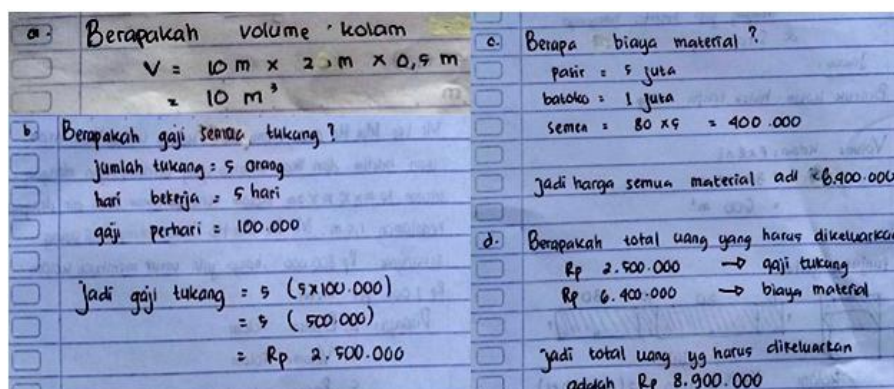 a. Berapakah volume kolam
V = 10 m x 2 m x 0,5 m
= 10 m³
b Berapakah gaji semua tukang?
jumlah tukang = 5 orang
hari bekerja = 5 hari
gaji perhari = 100.000
Jadi gaji tukang = 5 (5x100.000)
= 5 (500.000)
= Rp 2.500.000
c. Berapa biaya material?
pasir = 5 juta
batoko = 1 juta
semen = 80 x 5 = 400.000
Jadi harga semua material adl 6.400.000
d. Berapakah total uang yang harus dikeluarkan
Rp 2.500.000 → gaji tukang
Rp 6.400.000 → biaya material
Jadi total uang yg harus dikeluarkan
adalah Rp 8.900.000